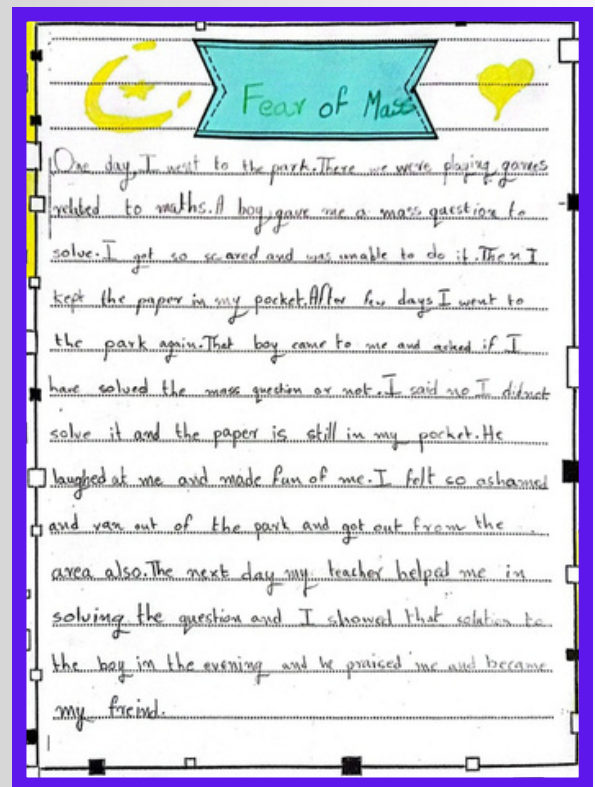 Fear of Mass
One day, I went to the park.There we were playing games
related to maths.A boy gave me a mass question to
solve.I get so scared and was unable to do it.Then I
kept the paper in my pocket.After few days I went to
the park again.That boy came to me and asked if I
have solved the mass question or not.I said no I didnot
solve it and the paper is still in my pocket.He
laughed at me and made fun of me.I felt so ashamed
and ran out of the park and got out from the
area also.The next day my teacher helped me in
solving the question and I showed that solution to
the boy in the evening and he praised me and became
my freind.